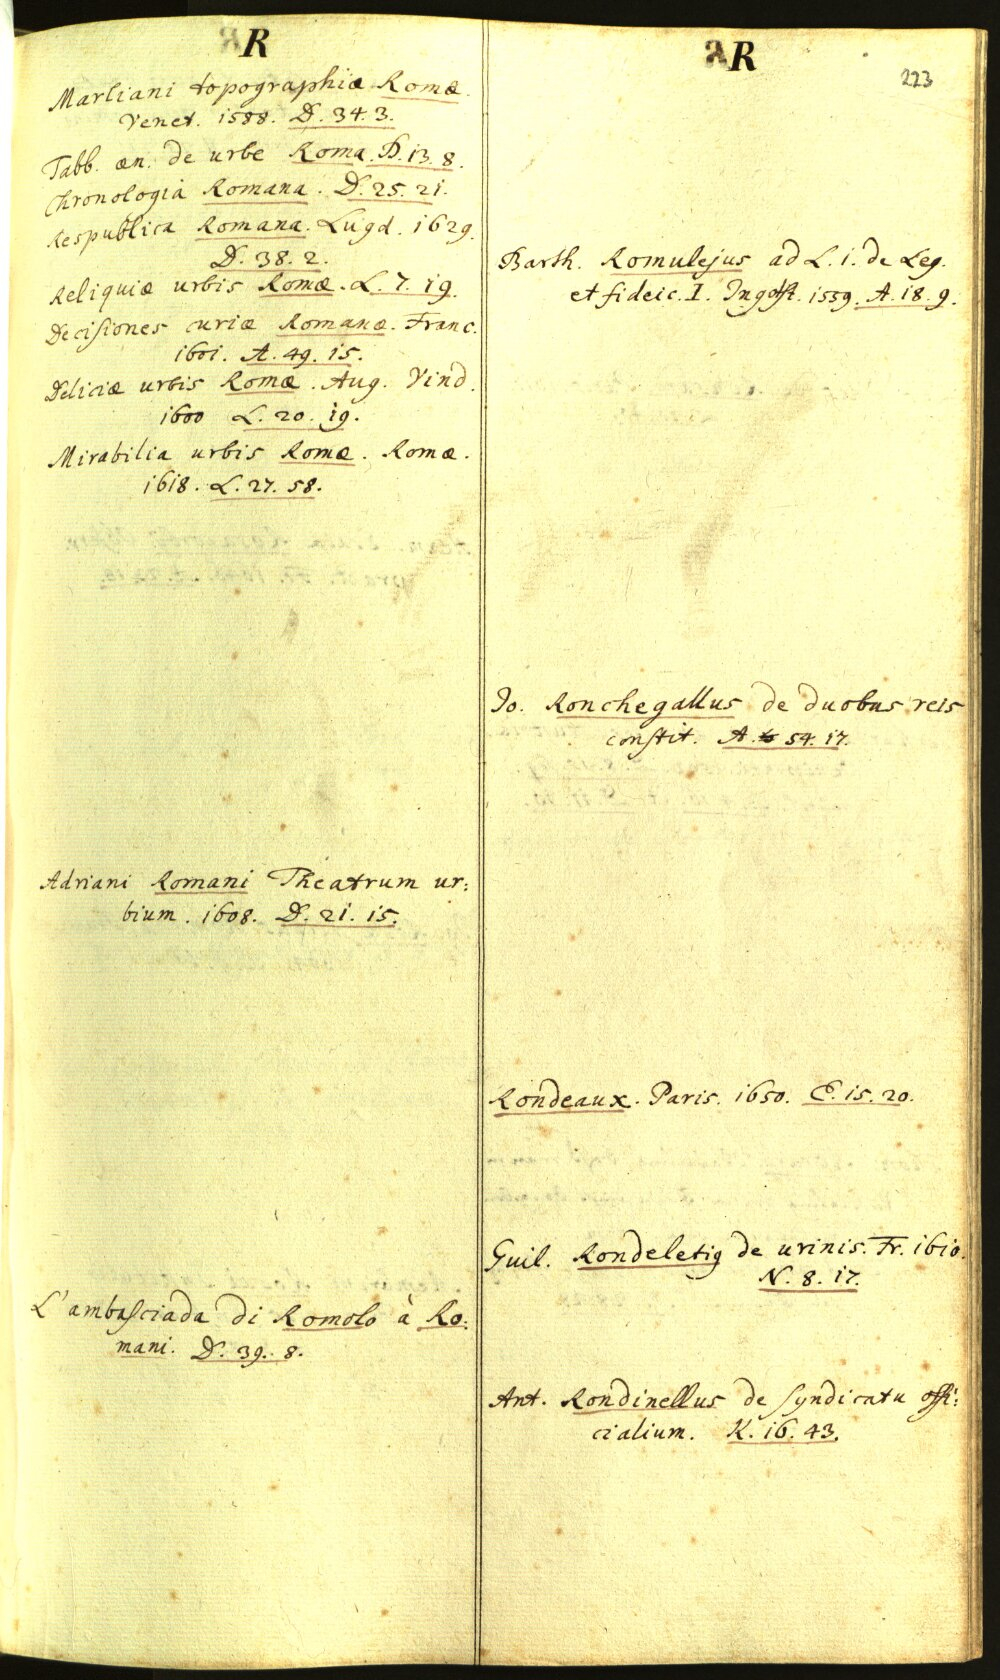 R
Marliani topographiæ Romæ.
Venet. 1588. D. 34. 3.
Tabb. æn. de urbe Roma. D. 13. 8.
Chronologia Romana. D. 25. 21.
Respublica Romana. Lugd. 1629.
D. 38. 2.
Reliquiæ urbis Romæ. L. 7. 19.
Decisiones curiæ Romanæ. Franc.
1601. A. 49. 15.
Deliciæ urbis Romæ. Aug. Vind.
1600 L. 20. 19.
Mirabilia urbis Romæ. Romæ.
1618. L. 27. 58.
Adriani Romani Theatrum ur:
bium. 1608. D. 21. 15.
L'ambasciada di Romolo à Ro:
mani. D. 39. 8.
R
223
Barth. Romulejus ad L. 1. de Leg.
et fideic. I. Ingolst. 1559. A. 18. 9.
Jo. Ronchegallus de duobus reis
constit. A. 54. 17.
Rondeaux. Paris. 1650. E. 15. 20.
Guil. Rondeletig de urinis. Fr. 1610.
N. 8. 17.
Ant. Rondinellus de syndicatu offi:
cialium. K. 16. 43.